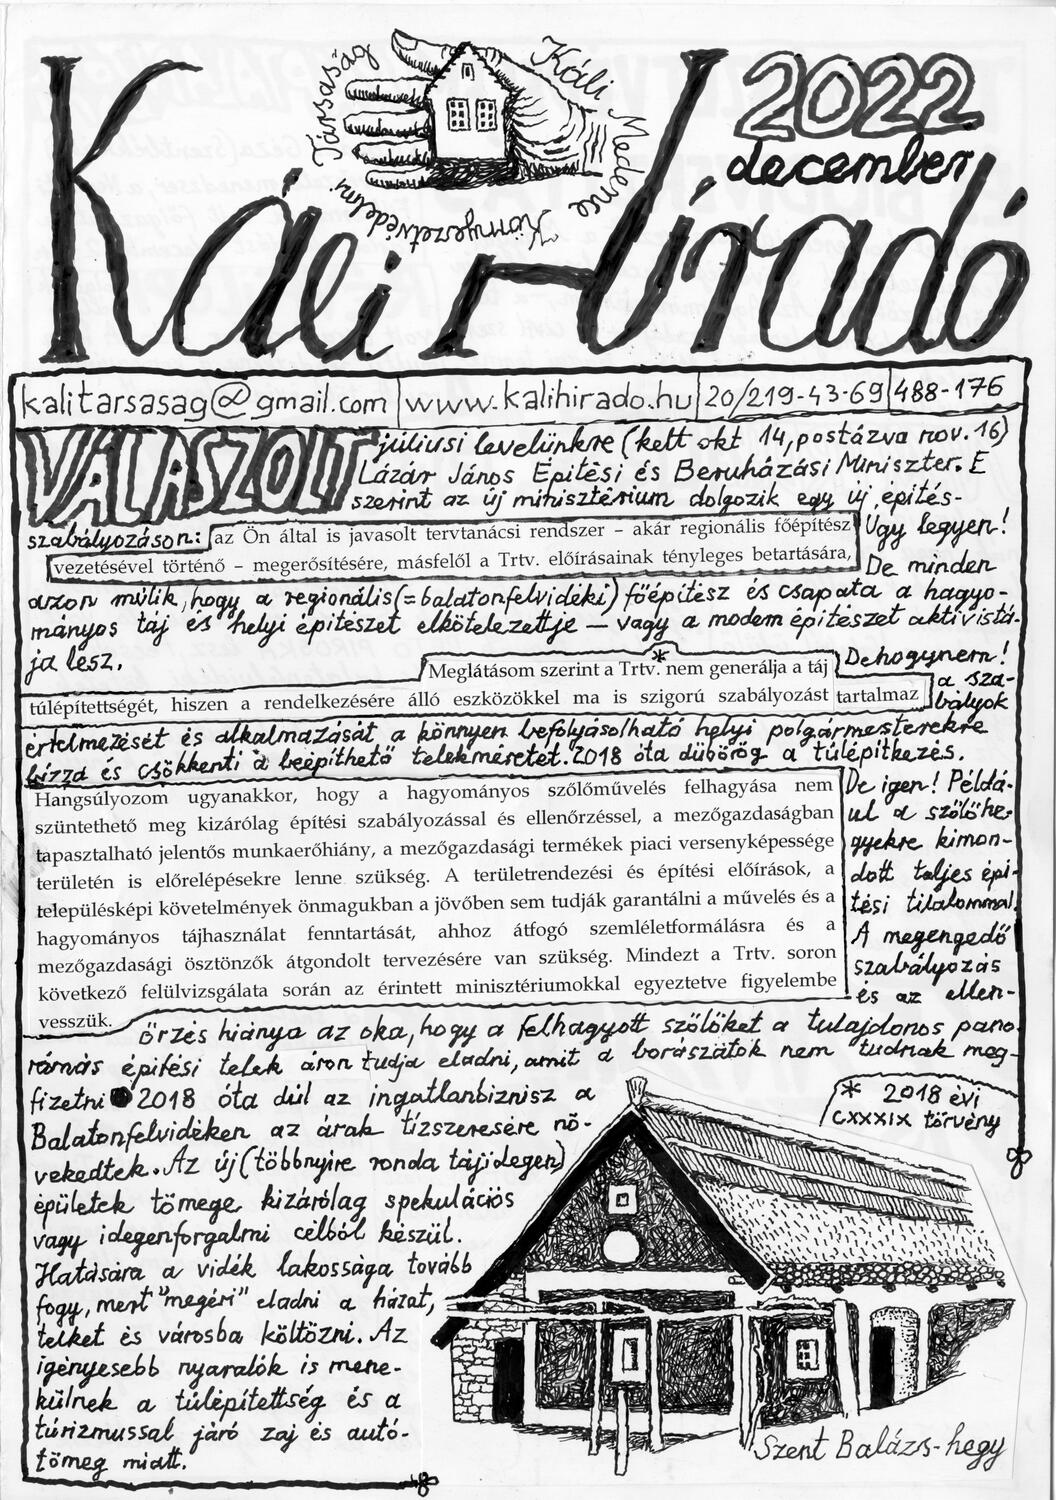 Káli Medence Környezetvédelmi Társaság
2022
december
Káli Híradó
kalitarsasag@gmail.com www.kalihirado.hu 20/219-43-69 488-176
VÁLASZOLT júliusi levelünkre (kelt okt 14, postázva nov. 16)
Lázár János Építési és Beruházási Miniszter. E
szerint az új minisztérium dolgozik egy új építés-
szabályozáson: az Ön által is javasolt tervtanácsi rendszer – akár regionális főépítész
vezetésével történő – megerősítésére, másfelől a Trtv. előírásainak tényleges betartására,
Úgy legyen!
De minden
azon múlik, hogy a regionális (=balatonfelvidéki) főépítész és csapata a hagyo-
mányos táj és helyi építészet elkötelezettje – vagy a modern építészet aktivistá-
ja lesz.
Meglátásom szerint a Trtv.* nem generálja a táj
túlépítettségét, hiszen a rendelkezésére álló eszközökkel ma is szigorú szabályozást tartalmaz
Dehogynem!
a sza-
bályok
értelmezését és alkalmazását a könnyen befolyásolható helyi polgármesterekre
bízza és csökkenti a beépíthető telekméretet. 2018 óta dübörög a túlépítkezés.
Hangsúlyozom ugyanakkor, hogy a hagyományos szőlőművelés felhagyása nem
szüntethető meg kizárólag építési szabályozással és ellenőrzéssel, a mezőgazdaságban
tapasztalható jelentős munkaerőhiány, a mezőgazdasági termékek piaci versenyképessége
területén is előrelépésekre lenne szükség. A területrendezési és építési előírások, a
településképi követelmények önmagukban a jövőben sem tudják garantálni a művelés és a
hagyományos tájhasználat fenntartását, ahhoz átfogó szemléletformálásra és a
mezőgazdasági ösztönzők átgondolt tervezésére van szükség. Mindezt a Trtv. soron
következő felülvizsgálata során az érintett minisztériumokkal egyeztetve figyelembe
vesszük.
De igen! Példá-
ul a szőlőhe-
gyekre kimon-
dott teljes épí-
tési tilalommal.
A megengedő
szabályozás
és az ellen-
őrzés hiánya az oka, hogy a felhagyott szőlőket a tulajdonos pano-
rámás építési telek áron tudja eladni, amit a borászatok nem tudnak meg-
fizetni ● 2018 óta dúl az ingatlanbiznisz a
Balatonfelvidéken az árak tízszeresére nö-
vekedtek. Az új (többnyire ronda tájidegen)
épületek tömege kizárólag spekulációs
vagy idegenforgalmi célból készül.
Hatására a vidék lakossága tovább
fogy, mert "megéri" eladni a házat,
telket és városba költözni. Az
igényesebb nyaralók is mene-
külnek a túlépítettség és a
túrizmussal járó zaj és autó-
tömeg miatt.
* 2018 évi
CXXXIX törvény
Szent Balázs-hegy